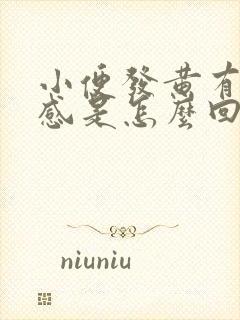 小便發黃有
感是怎麼回
niuniu